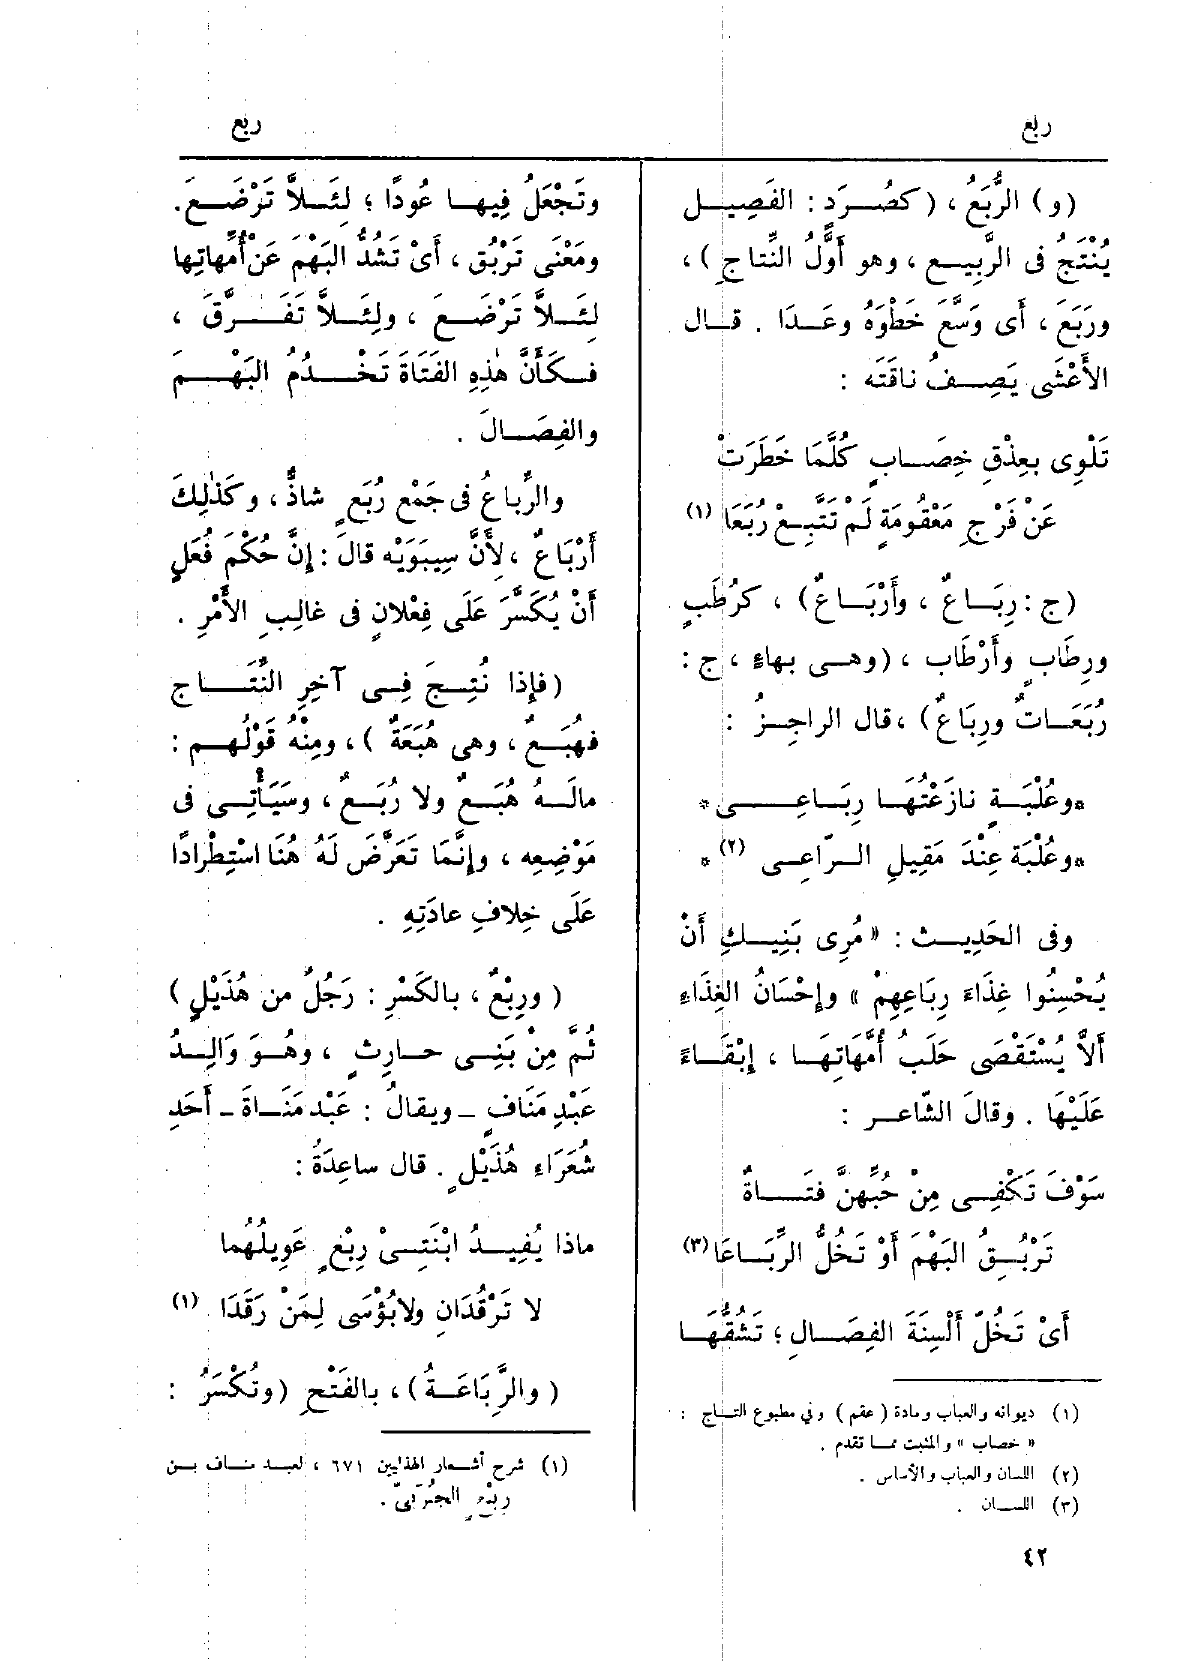 ربع
ربع
(و) الرُّبَعُ ، (كصُرَد : الفَصِيل
يُنْتَجُ فى الرَّبِيع ، وهو أَوَّلُ النِّتاجِ ) ،
ورَبَعَ ، أى وَسَّعَ خَطْوَهُ وعَدَا . قال
الأَعْشَى يَصِفُ ناقَتَه :
تَلْوِى بعِذْقِ خِصَابٍ كُلَّمَا خَطَرَتْ
عَنْ فَرْجِ مَعْقُومَةٍ لَمْ تَتَّبِعْ رُبَعَا (١)
(ج : رِبَاعٌ ، وأَرْبَاعٌ) ، كرُطَبٍ
ورِطَابٍ وأَرْطَاب ، (وهى بهاءٍ ، ج :
رُبَعَاتٌ ورِبَاعٌ) ، قال الراجِزُ :
*وعُلْبَةٍ نازَعْتُهَا رِبَاعِى*
*وعُلْبَة عِنْدَ مَقِيلِ الرّاعِى (٢) *
وفى الحَدِيث : « مُرِى بَنِيكِ أَنْ
يُحْسِنُوا غِذَاءَ رِبَاعِهِمْ » وإِحْسَانُ الغِذَاءِ
أَلاَّ يُسْتَقْصَى حَلَبُ أُمَّهَاتِهَا ، إِبْقَاءً
عَلَيْهَا . وقالَ الشّاعر :
سَوْفَ تَكْفِى مِنْ حُبِّهِنَّ فَتَاةٌ
تَرْبُقُ البَهْمَ أَوْ تَخُلُّ الرِّبَاعَا (٣)
أَىْ تَخُلّ أَلْسِنَةَ الفِصَال ؛ تَشُقُّهَا
(١) ديوانه والعباب ومادة (عقم) وفي مطبوع التاج :
« خصاب » والمثبت مما تقدم .
(٢) اللسان والعباب والأساس .
(٣) اللسان .
وتَجْعَلُ فِيها عُودًا ؛ لِئَلاَّ تَرْضَعَ .
ومَعْنَى تَرْبُق ، أىْ تَشُدُّ البَهْمَ عَنْ أُمَّهاتِها
لِئَلاَّ تَرْضَعَ ، ولِئَلاَّ تَفَرَّقَ ،
فكَأَنَّ هٰذِهِ الفَتَاةَ تَخْدُمُ البَهْمَ
والفِصَالَ .
والرِّباعُ فى جَمْعِ رُبَعٍ شاذٌّ ، وكَذٰلِكَ
أَرْبَاعٌ ، لِأَنَّ سِيبَوَيْه قالَ : إِنَّ حُكْمَ فُعَلٍ
أَنْ يُكَسَّرَ عَلَى فِعْلانٍ فى غالِبِ الأَمْرِ .
(فإِذا نُتِجَ فِى آخِرِ النِّتَاج
فهُبَعٌ ، وهى هُبَعَةٌ ) ، ومِنْهُ قَوْلُهم :
مالَهُ هُبَعٌ ولا رُبَعٌ ، وسَيَأْتِى فى
مَوْضِعِه ، وإِنَّمَا تَعَرَّضَ لَهُ هُنَا اسْتِطْرادًا
عَلَى خِلافِ عادَتِهِ .
( ورِبْعٌ ، بالكَسْرِ : رَجُلٌ من هُذَيْلٍ )
ثُمَّ مِنْ بَنِى حارِثٍ ، وهُوَ وَالِدُ
عَبْدِ مَنَافٍ ـ ويقالُ : عَبْد مَنَاةَ ـ أَحَدِ
شُعَرَاءِ هُذَيْلٍ . قال ساعِدَةُ :
ماذا يُفِيدُ ابْنَتَىْ رِبْعٍ عَوِيلُهُما
لا تَرْقُدَانِ ولابُؤْسَى لِمَنْ رَقَدَا (١)
( والرَّبَاعَةُ ) ، بالفَتْحِ (وتُكْسَرُ :
(١) شرح أشعار الهذليين ٦٧١ ، لعبد مناف بن
ربْعٍ الجُرَبىّ .
٤٢